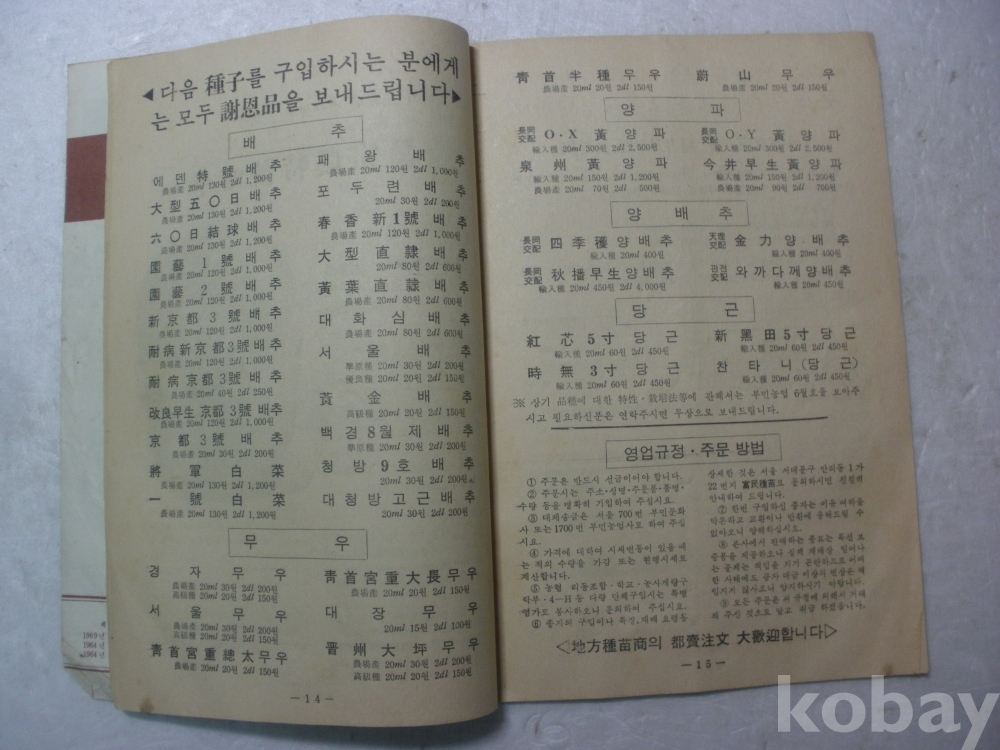 ◀다음 種子를 구입하시는 분에게
는 모두 謝恩品을 보내드립니다▶
배 추
에덴特號배추
農場產 20ml 130원 2dl 1,200원
大型五〇日배추
農場產 20ml 130원 2dl 1,200원
六〇日結球배추
農場產 20ml 130원 2dl 1,200원
園藝1號배추
農場產 20ml 120원 2dl 1,000원
園藝2號배추
農場產 20ml 120원 2dl 1,000원
新京都3號배추
農場產 20ml 120원 2dl 1,000원
耐病新京都3號배추
農場產 20ml 120원 2dl 1,000원
耐病京都3號배추
農場產 20ml 40원 2dl 250원
改良早生京都3號배추
京都3號배추
農場產 20ml 30원 2dl 200원
將軍白菜
農場產 20ml 130원 2dl 1,200원
一號白菜
農場產 20ml 130원 2dl 1,200원
패왕배추
農場產 20ml 120원 2dl 1,000원
포두련배추
20ml 30원 2dl 200원
春香新1號배추
農場產 20ml 120원 2dl 1,000원
大型直隷배추
20ml 80원 2dl 600원
黃葉直隷배추
農場產 20ml 80원 2dl 600원
대화심배추
農場產 20ml 80원 2dl 600원
서울배추
華原種 20ml 30원 2dl 200원
優良種 20ml 20원 2dl 150원
黃金배추
高級種 20ml 20원 2dl 150원
백경8월제배추
華原種 20ml 30원 2dl 200원
청방9호배추
20ml 30원 2dl 200원
대청방고근배추
20ml 30원 2dl 200원
무 우
경자무우
農場產 20ml 30원 2dl 200원
高級種 20ml 20원 2dl 150원
서울무우
農場產 20ml 30원 2dl 200원
高級種 20ml 20원 2dl 150원
靑首宮重總太무우
農場產 20ml 20원 2dl 150원
靑首宮重大長무우
農場產 20ml 20원 2dl 150원
대장무우
20ml 15원 2dl 100원
晋州大坪무우
農場產 20ml 30원 2dl 200원
高級種 20ml 20원 2dl 150원
— 14 —
靑首半種무우
農場產 20ml 20원 2dl 150원
蔚山무우
農場產 20ml 20원 2dl 150원
양 파
長岡交配 O·X 黃양파
輸入種 20ml 300원 2dl 2,500원
長岡交配 O·Y 黃양파
輸入種 20ml 300원 2dl 2,500원
泉州黃양파
輸入種 20ml 150원 2dl 1,200원
農場產 20ml 70원 2dl 500원
今井早生黃양파
輸入種 20ml 150원 2dl 1,200원
農場產 20ml 90원 2dl 700원
양 배 추
長岡交配 四季穫양배추
輸入種 20ml 400원
天理交配 金力양배추
輸入種 20ml 400원
長岡交配 秋播早生양배추
輸入種 20ml 450원 2dl 4,000원
와까다께양배추
輸入種 20ml 450원
당 근
紅芯5寸당근
輸入種 20ml 60원 2dl 450원
新黑田5寸당근
輸入種 20ml 60원 2dl 450원
時無3寸당근
輸入種 20ml 60원 2dl 450원
찬타니(당근)
輸入種 20ml 60원 2dl 450원
※ 상기 品種에 대한 特性·栽培法等에 관해서는 부민농업 6월호를 보아주
시고 필요하신분은 연락주시면 무상으로 보내드립니다.
영업규정·주문 방법
① 주문은 반드시 선금이어야 합니다.
② 주문시는 주소·성명·주문품·품명·
수량 등을 명확히 기입하여 주십시요.
③ 대체송금은 서울 700번 부민문화
사 또는 1700번 부민농업사로 하여 주십
시요.
④ 가격에 대하여 시세변동이 있을 때
는 적의 수량을 가감 또는 현행시세로
계산합니다.
⑤ 농협 리동조합·학교·농사개량구
락부·4—H 등 다량 단체구입시는 특별
염가로 봉사하오니 문의하여 주십시요.
⑥ 종자의 구입이나 특징, 재배 요령등
상세한 것은 서울 서대문구 만리동 1가
22번지 富民種苗로 문의하시면 친절히
안내하여 드립니다.
⑦ 한번 구입하신 종자는 이유 여하를
막론하고 교환이나 반환에 응해드릴 수
없아오니 양해하십시요.
⟨地方種苗商의 都賣注文 大歡迎합니다⟩
— 15 —
1969년
1964년
1964년
kobay